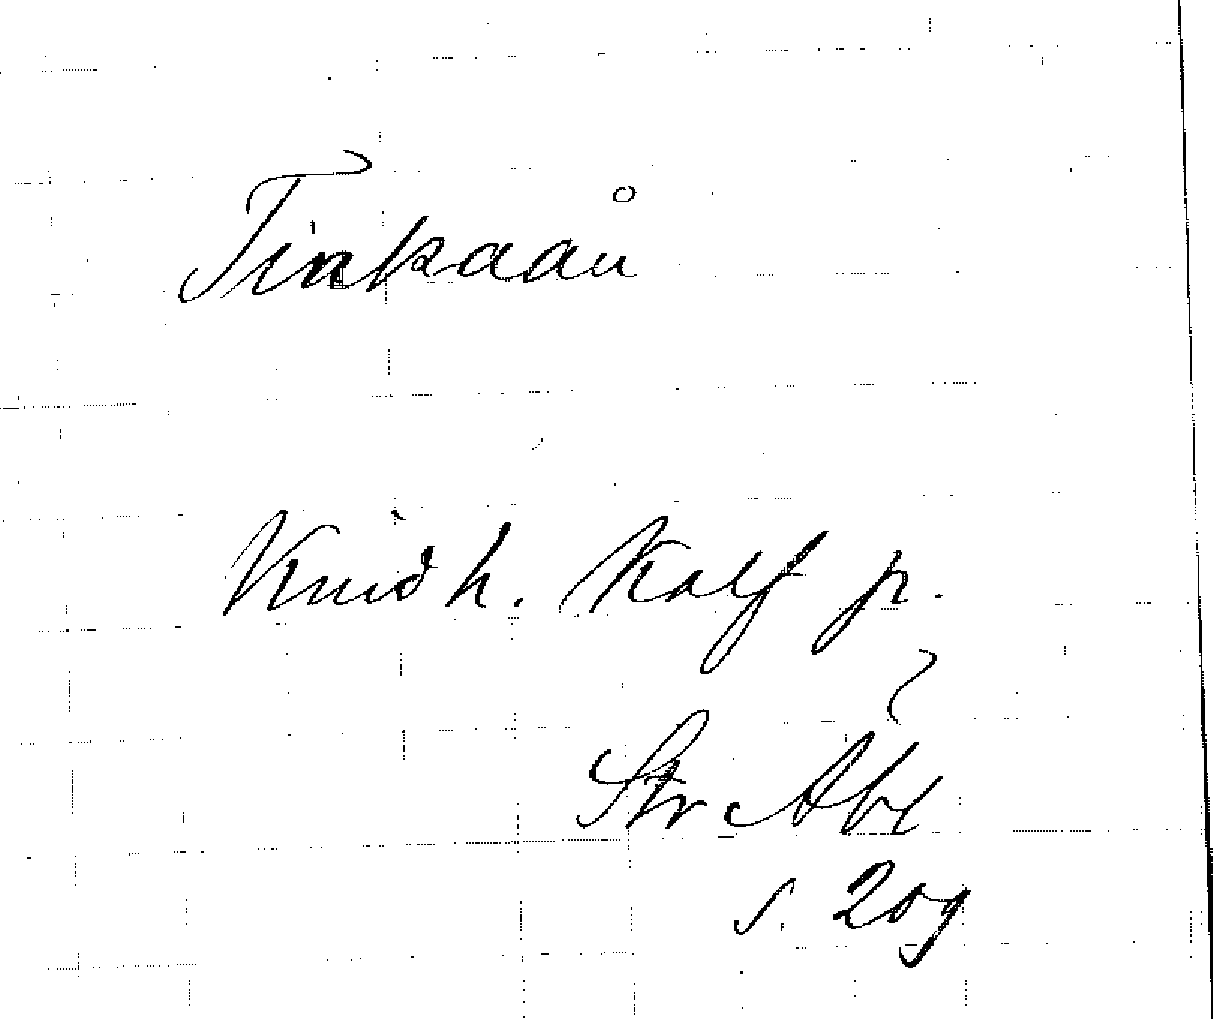 Tinkaau
Knid h. Kalf p.
Str Abx
s. 209